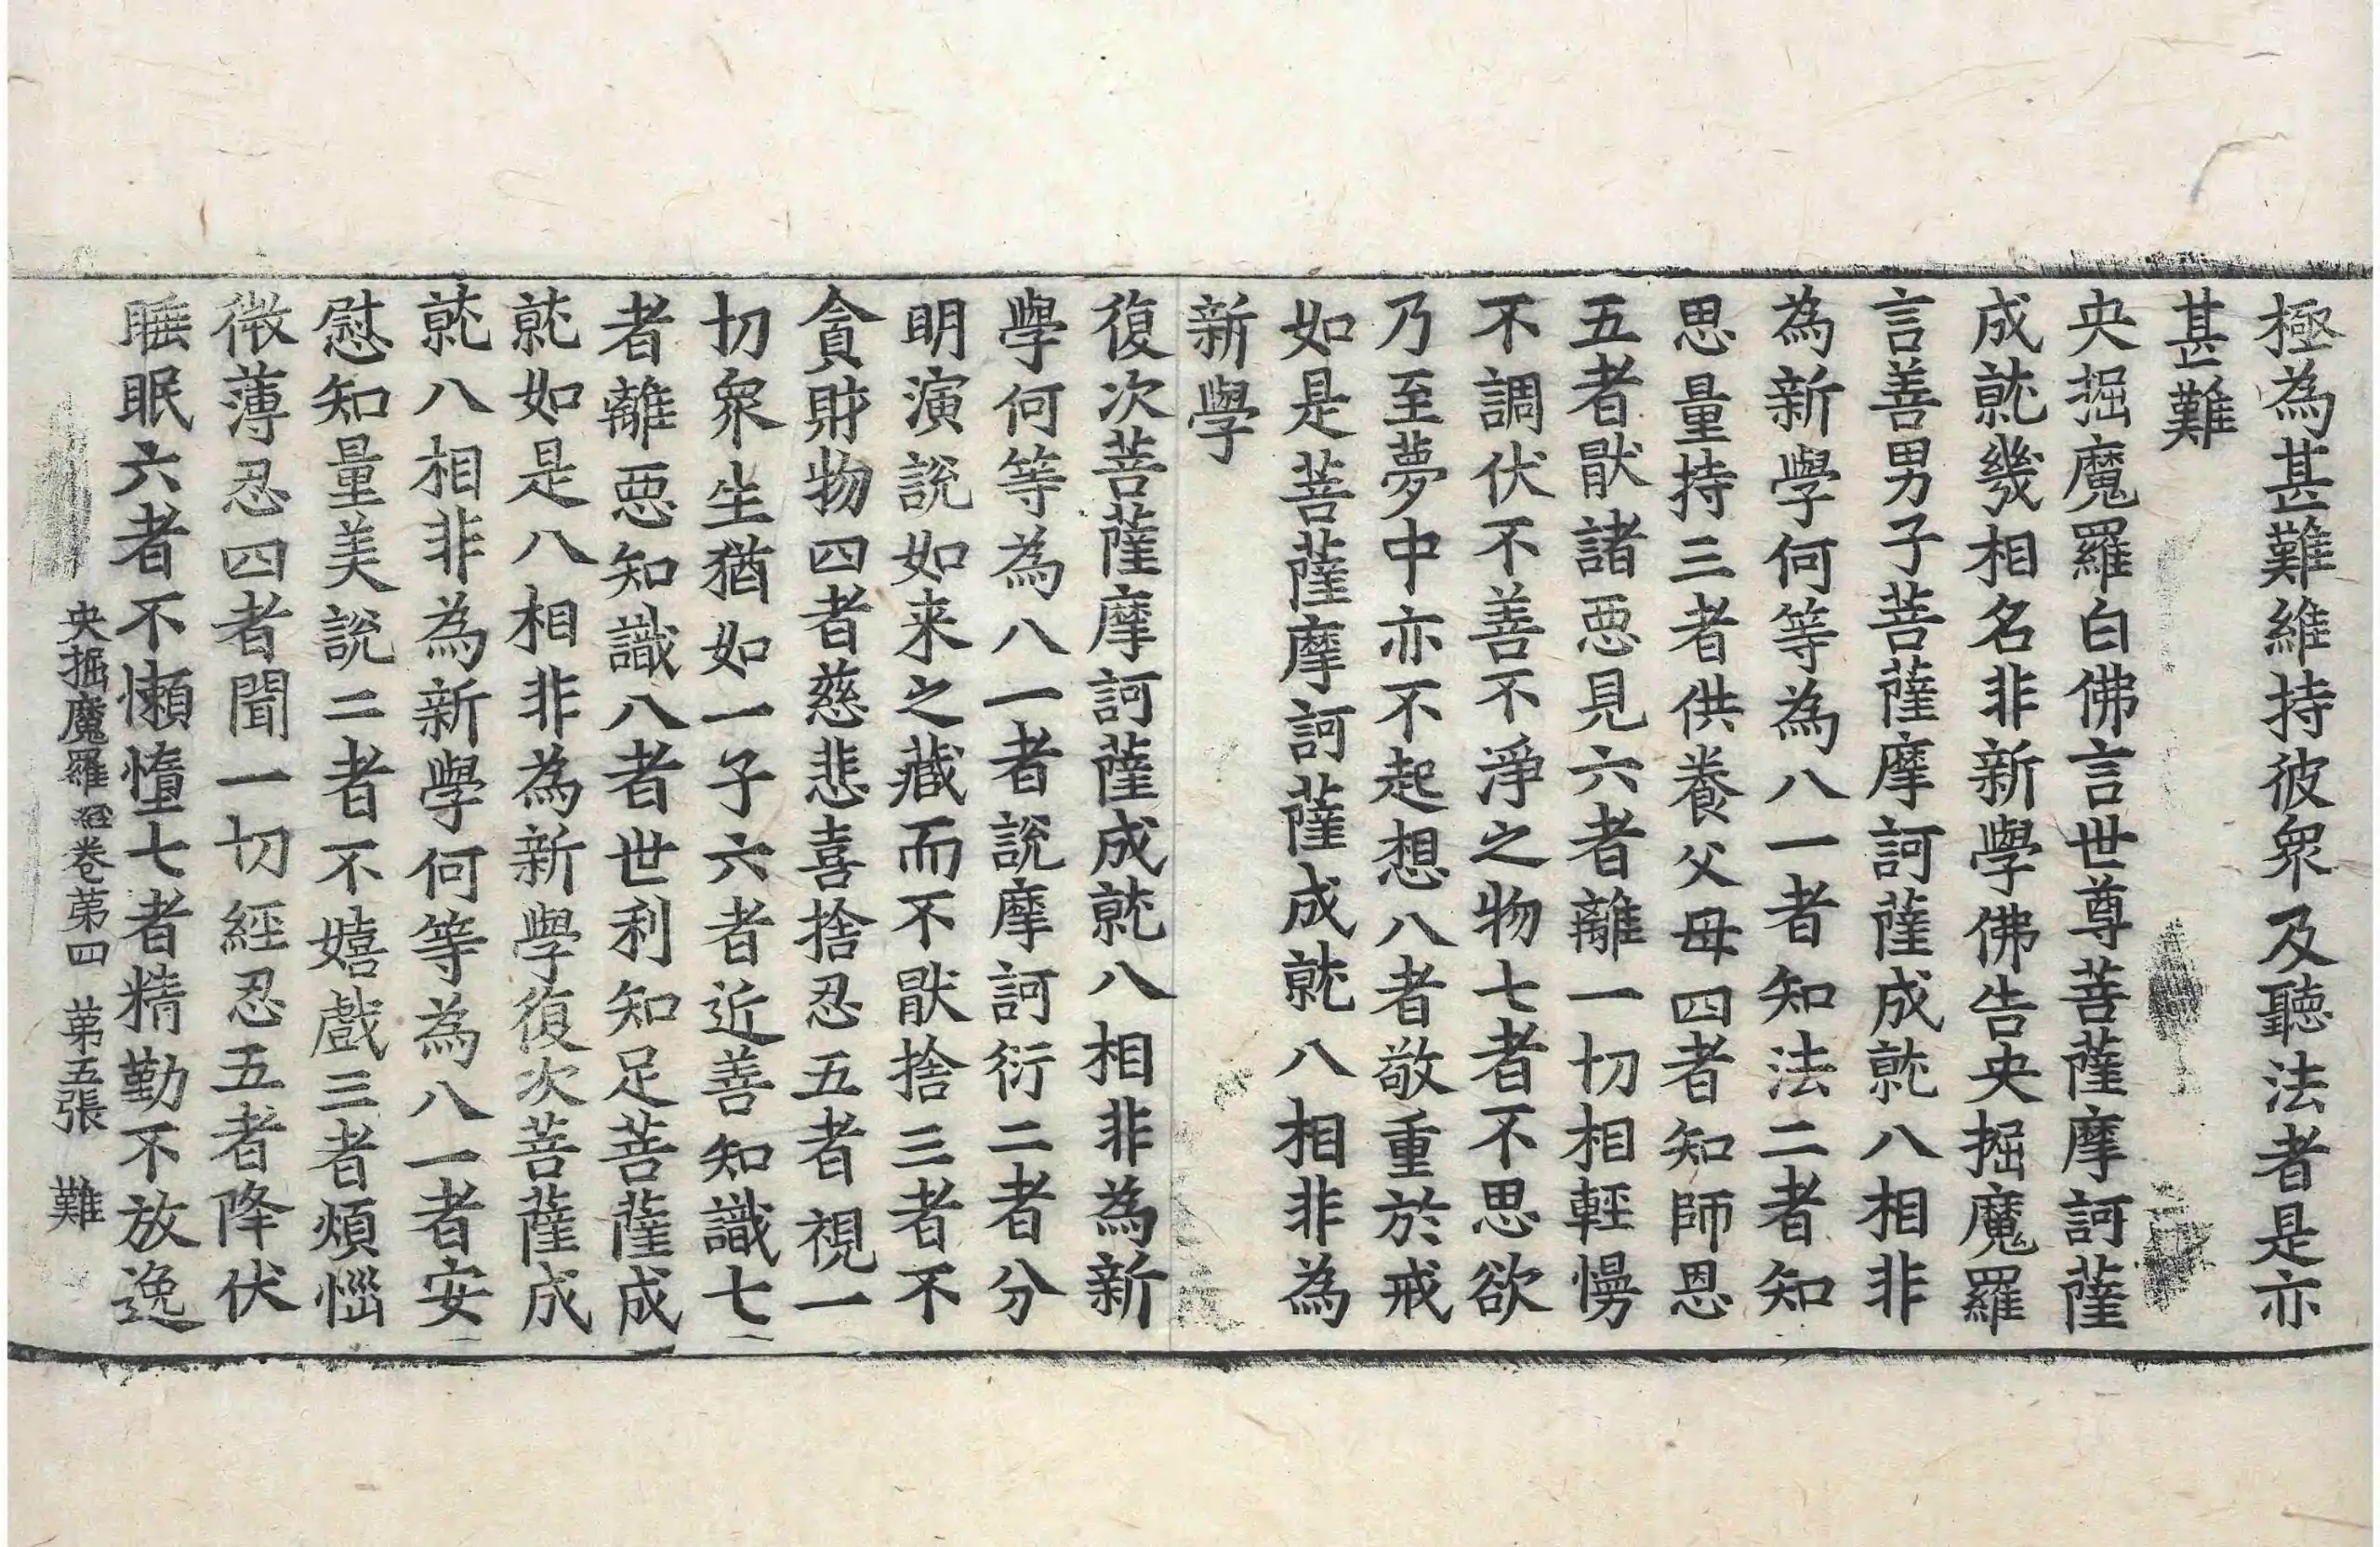 極為甚難維持彼衆及聽法者是亦
甚難
央掘魔羅白佛言世尊菩薩摩訶薩
成就幾相名非新學佛告央掘魔羅
言善男子菩薩摩訶薩成就八相非
為新學何等為八一者知法二者知
思量持三者供養父母四者知師恩
五者厭諸惡見六者離一切相輕慢
不調伏不善不淨之物七者不思欲
乃至夢中亦不起想八者敬重於戒
如是菩薩摩訶薩成就八相非為
新學
復次菩薩摩訶薩成就八相非為新
學何等為八一者說摩訶衍二者分
明演說如来之藏而不厭捨三者不
貪財物四者慈悲喜捨忍五者視一
切衆生猶如一子六者近善知識七
者離惡知識八者世利知足菩薩成
就如是八相非為新學復次菩薩成
就八相非為新學何等為八一者安
慰知量美說二者不嬉戲三者煩惱
微薄忍四者聞一切經忍五者降伏
睡眠六者不懶憧七者精勤不放逸
央掘魔羅經卷第四 第五張 難